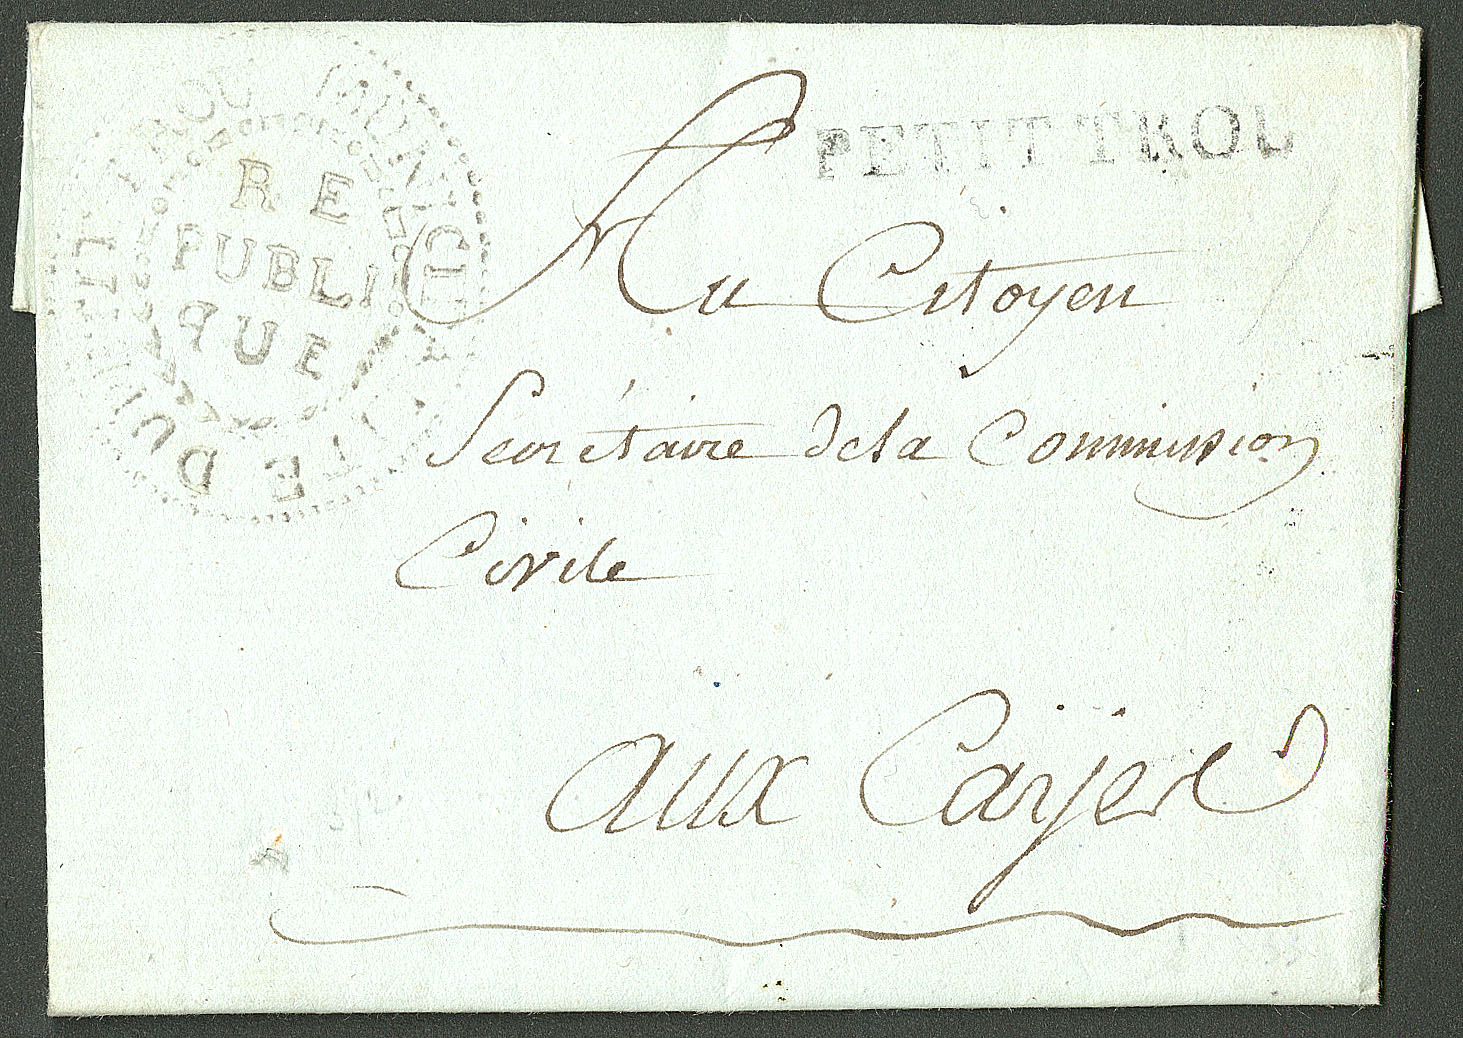 PETIT TROU
RE
PUBLI
QUE
Au Citoyen
Secrétaire de la Commission
Civile
aux Cayes